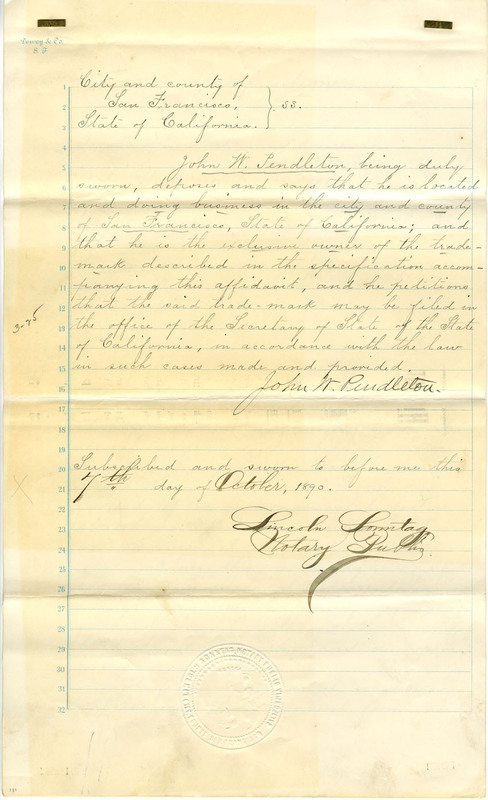 Dewey & Co.
S. F.
City and county of
San Francisco,
State of California. } ss.
John W. Pendleton, being duly
sworn, deposes and says that he is located
and doing business in the city and county
of San Francisco, State of California; and
that he is the exclusive owner of the trade-
mark described in the specification accom-
panying this affidavit, and he petitions
that the said trade-mark may be filed in
the office of the Secretary of State of the State
of California, in accordance with the law
in such cases made and provided.
John W. Pendleton.
Subscribed and sworn to before me this
7th day of October, 1890.
Lincoln Sonntag
Notary Public
1
2
3
4
5
6
7
8
9
10
11
12
13
14
15
16
17
18
19
20
21
22
23
24
25
26
27
28
29
30
31
32